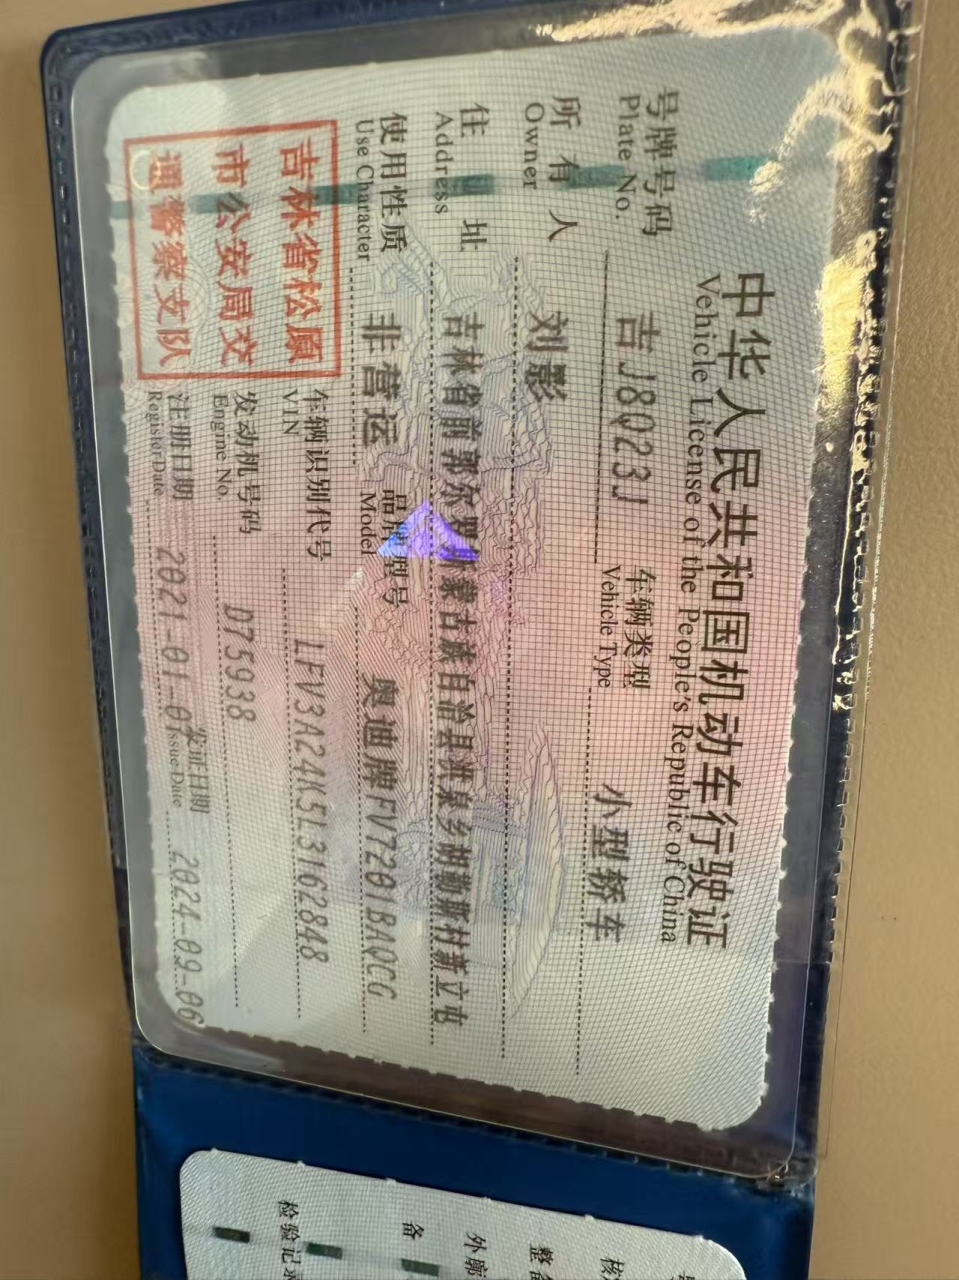 中华人民共和国机动车行驶证
Vehicle License of the People's Republic of China
号牌号码 吉J8Q23J 车辆类型 小型轿车
Plate No. Vehicle Type
所有人 刘影
Owner
住址 吉林省前郭尔罗斯蒙古族自治县洪泉乡 村新立屯
Address
使用性质 非营运 品牌型号 奥迪牌FV7201BAQCG
Use Character Model
吉林省松原
市公安局交
通警察支队
车辆识别代号 LFV3A24K5L3162848
VIN
发动机号码 D75938
Engine No.
注册日期 2021-01-07 发证日期 2024-09-06
Register Date Issue Date
核
整备
外廓
备
检验记录